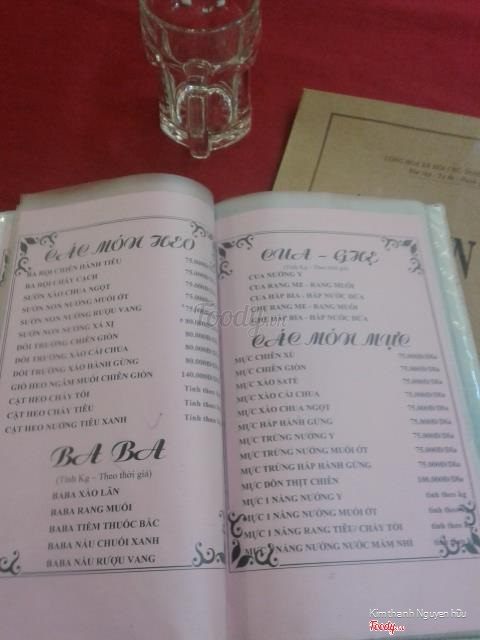 CÁC MÓN HEO
BA RỌI CHIÊN HÀNH TIÊU 75.000
BA RỌI CHÁY CẠCH 75.000
SƯỜN XÀO CHUA NGỌT 75.000
SƯỜN NON NƯỚNG MUỐI ỚT 75.000
SƯỜN NON NƯỚNG RƯỢU VANG 75.000
SƯỜN NON NƯỚNG XÁ XỊ 80.000
DỒI TRƯỜNG CHIÊN GIÒN 80.000
DỒI TRƯỜNG XÀO CẢI CHUA 80.000
DỒI TRƯỜNG XÀO HÀNH GỪNG 80.000
GIÒ HEO NGÂM MUỐI CHIÊN GIÒN 140.000Đ
CẬT HEO CHÁY TỎI Tính theo
CẬT HEO CHÁY TIÊU Tính theo
CẬT HEO NƯỚNG TIÊU XANH Tính theo
BA BA
(Tính Kg – Theo thời giá)
BABA XÀO LĂN
BABA RANG MUỐI
BABA TIỀM THUỐC BẮC
BABA NẤU CHUỐI XANH
BABA NẤU RƯỢU VANG
CUA - GHẸ
(Tính Kg – Theo thời giá)
CUA NƯỚNG Y
CUA RANG ME - RANG MUỐI
CUA HẤP BIA - HẤP NƯỚC DỪA
GHẸ RANG ME - RANG MUỐI
GHẸ HẤP BIA - HẤP NƯỚC DỪA
CÁC MÓN MỰC
MỰC CHIÊN XÙ 75.000Đ/Dĩa
MỰC CHIÊN GIÒN 75.000Đ/Dĩa
MỰC XÀO SATẾ 75.000Đ/Dĩa
MỰC XÀO CẢI CHUA 75.000Đ/Dĩa
MỰC XÀO CHUA NGỌT 75.000Đ/Dĩa
MỰC HẤP HÀNH GỪNG 75.000Đ/Dĩa
MỰC TRỨNG NƯỚNG Y 75.000Đ/Dĩa
MỰC TRỨNG NƯỚNG MUỐI ỚT 75.000Đ/Dĩa
MỰC TRỨNG HẤP HÀNH GỪNG 75.000Đ/Dĩa
MỰC DỒN THỊT CHIÊN 100.000Đ/Dĩa
MỰC 1 NẮNG NƯỚNG Y tính theo kg
MỰC 1 NẮNG NƯỚNG MUỐI ỚT tính theo
MỰC 1 NẮNG RANG TIÊU/ CHÁY TỎI tính theo
MỰC 1 NẮNG NƯỚNG NƯỚC MẮM NHĨ tính theo
CỘNG HÒA XÃ HỘI CHỦ
Foody.vn
Kimthanh Nguyen hữu
Foody.vn